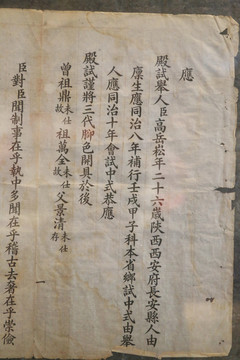 應
殿試舉人臣高岳崧年二十六歲陝西西安府長安縣人由
廩生應同治八年補行壬戌甲子科本省鄉試中式由舉
人應同治十年會試中式恭應
殿試謹將三代腳色開具於後
曾祖鼎未仕故 祖萬全未仕故 父景清未仕故
臣對臣聞制事在乎執中多聞在乎稽古去奢在乎崇儉
一